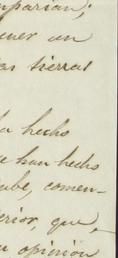 mparian;
ner un
as tierras
a hecho
e han hecho
abe, comen-
erior, que,
u opinion